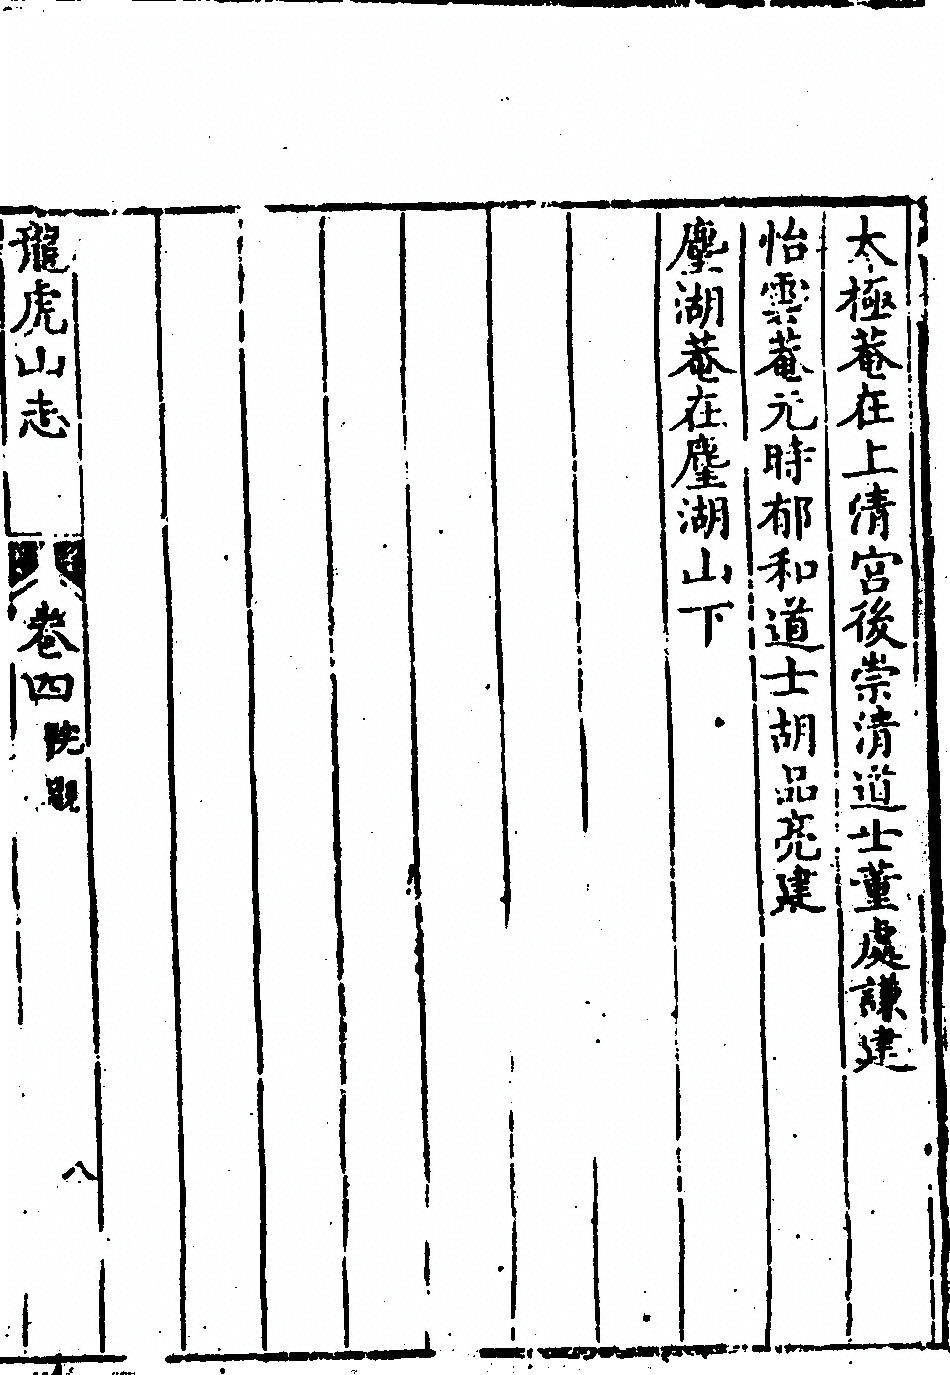 太極菴在上清宮後崇清道士董處謙建
怡雲菴元時郁和道士胡品亮建
塵湖菴在塵湖山下
龍虎山志
卷四
院觀
八